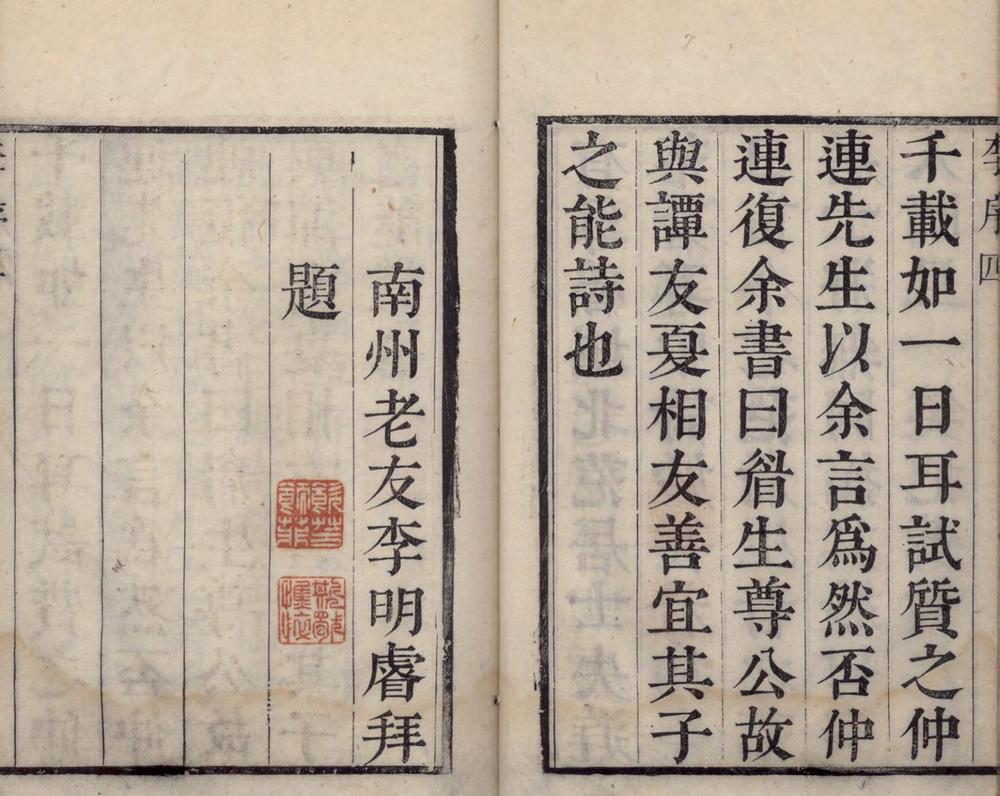 李序 四
千載如一日耳試質之仲
連先生以余言爲然否仲
連復余書曰眉生尊公故
與譚友夏相友善宜其子
之能詩也
南州老友李明睿拜
題